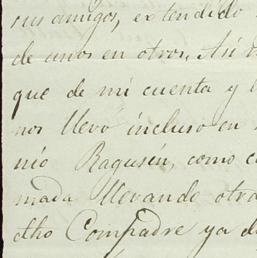 sus amigos, extendido
de unos en otros. Así
que de mi cuenta y
nos llevó incluso en
nió Ragusin, como
mada llevando otra
dho Compadre ya